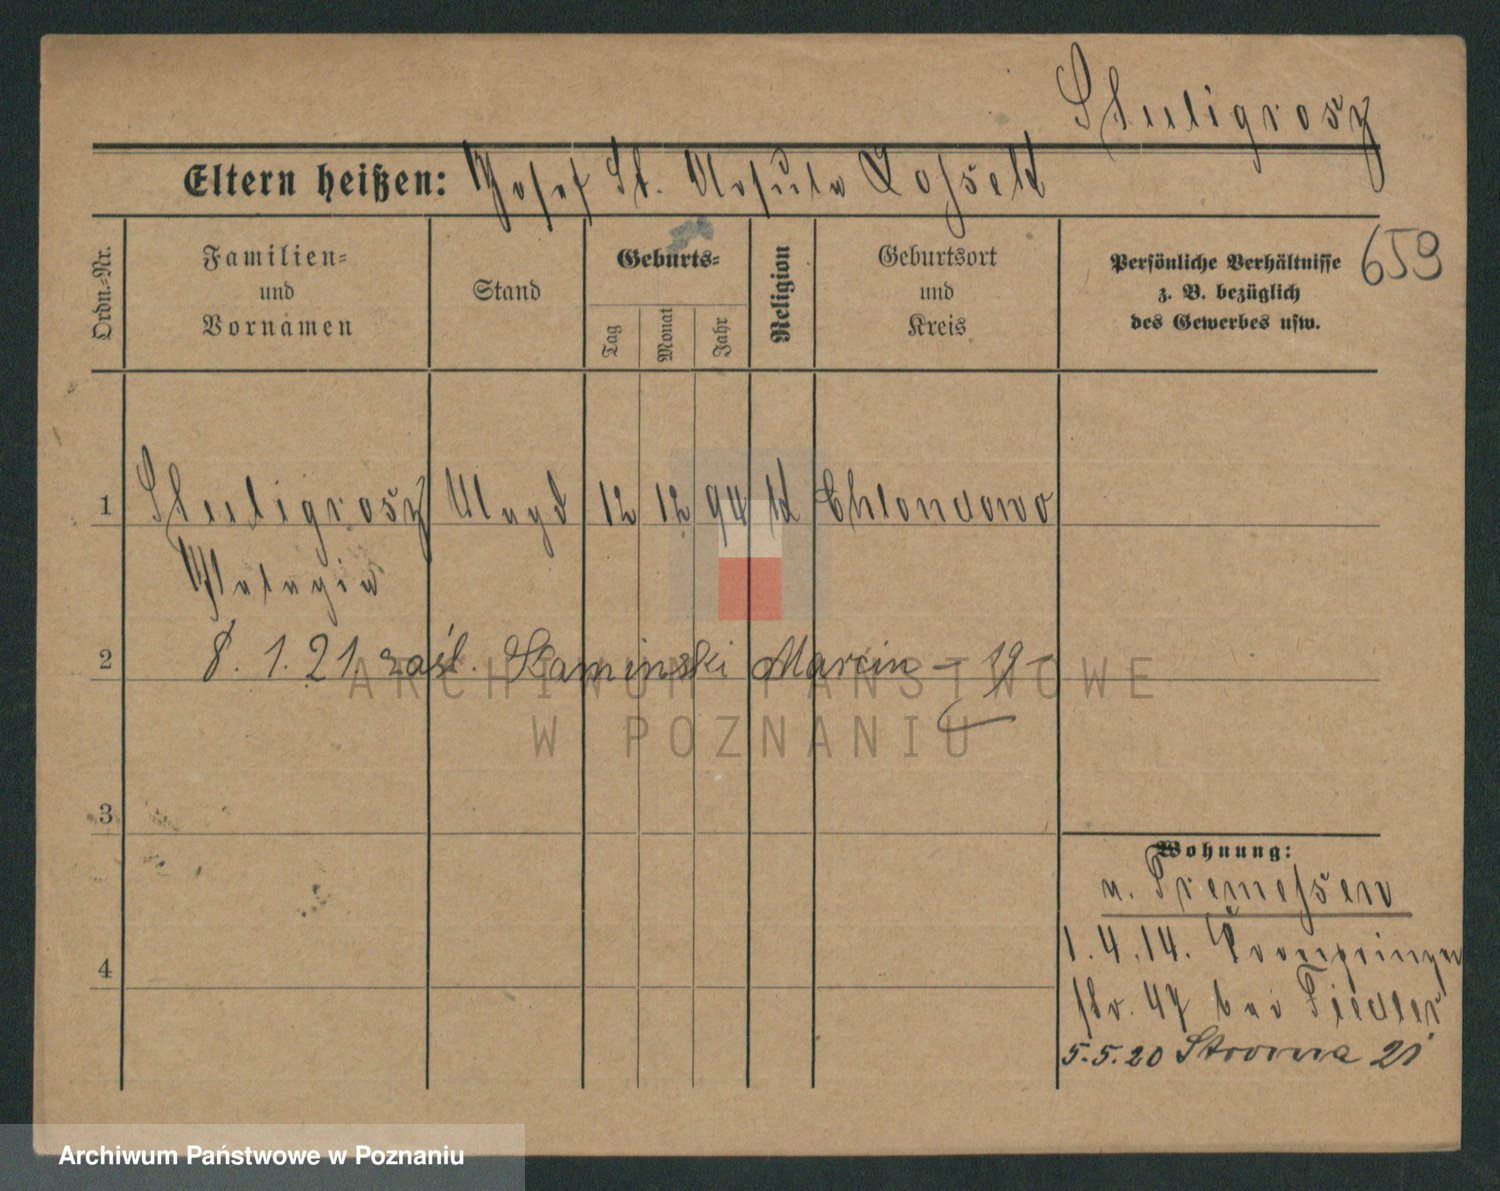 Stuligrosz
Eltern heißen: Josef St. Ursula Losseck
Ordn.=Nr.
Familien=
und
Vornamen
Stand
Geburts=
Tag
Monat
Jahr
Religion
Geburtsort
und
Kreis
Persönliche Verhältnisse
z. B. bezüglich
des Gewerbes usw.
659
1 Stuligrosz Magd 12 12 94 k Chlondowo
Pelagia
2 8. 1. 21 zaśl. Kaminski Marcin - 19 -
3
4
Wohnung:
n. Tremessen
1. 4. 14. Kronprinzen
str. 47 bei Fiedler
5. 5. 20 Stroma 21
ARCHIWUM PAŃSTWOWE
W POZNANIU
Archiwum Państwowe w Poznaniu